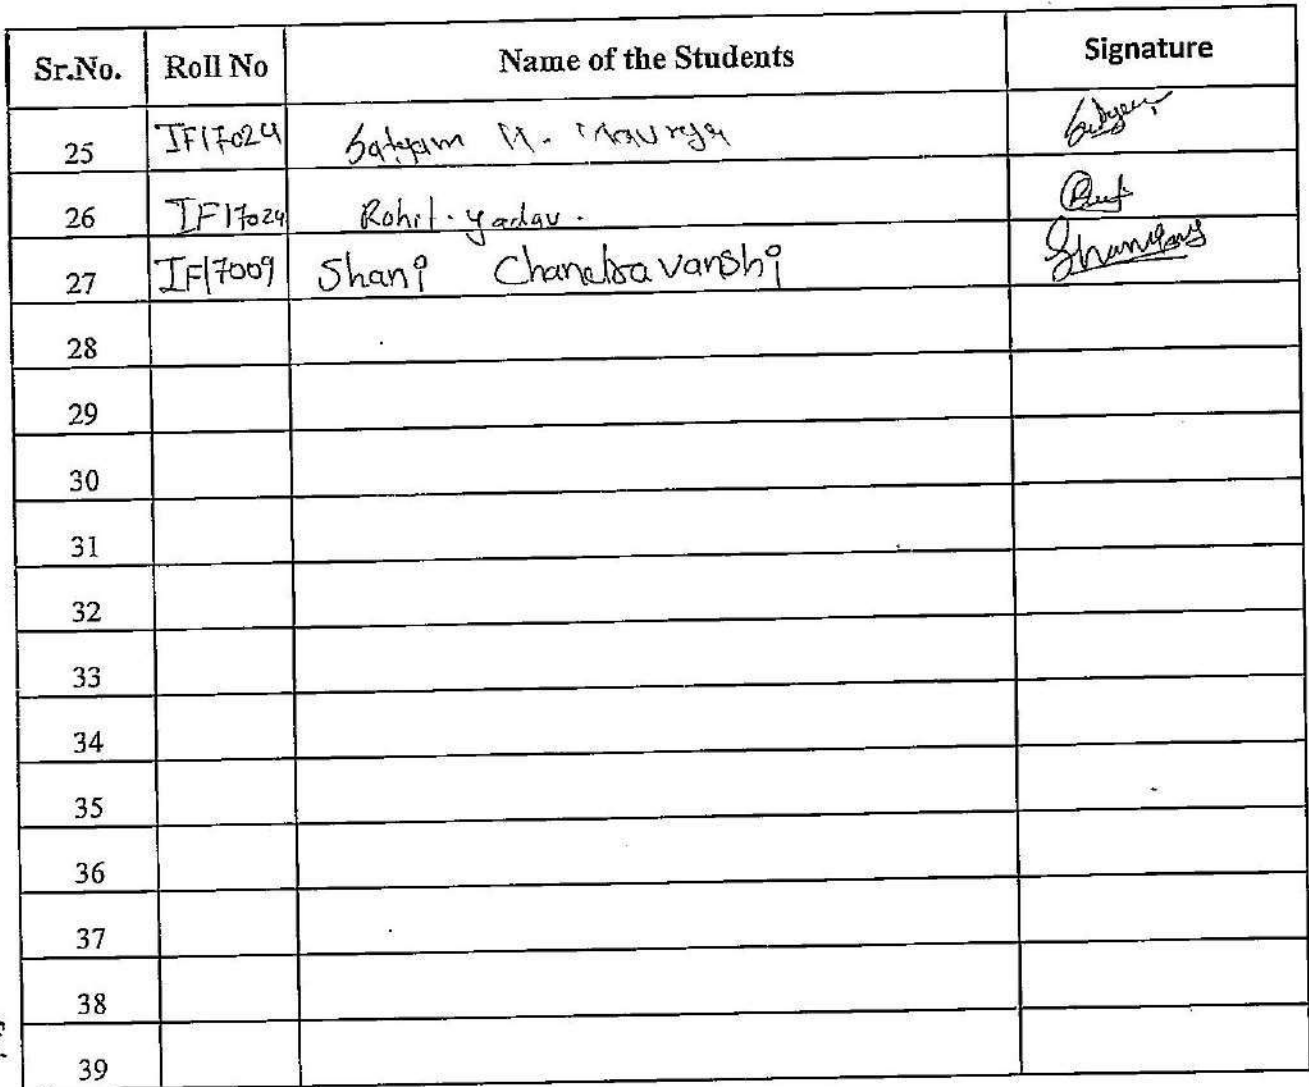 Sr.No. Roll No Name of the Students Signature
25 IF17024 Satyam M. Maurya
26 IF17024 Rohit. yadav.
27 IF17009 Shani Chandravanshi
28
29
30
31
32
33
34
35
36
37
38
39